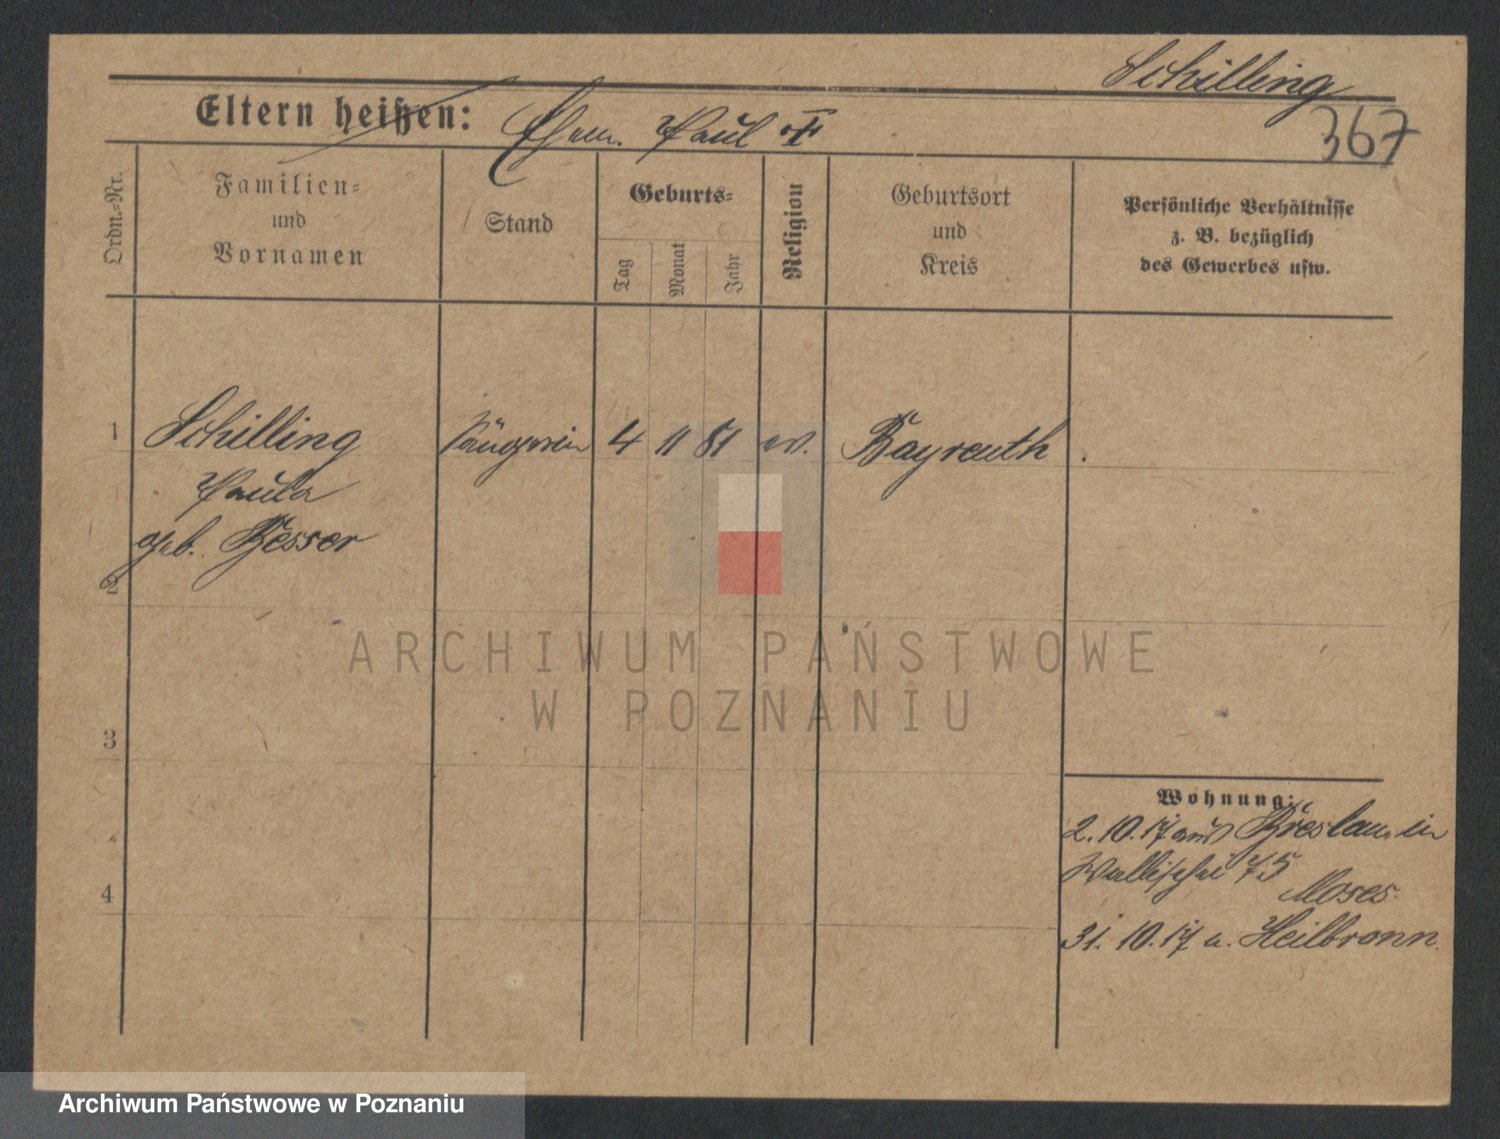 Schilling
367
Eltern heißen: Ehem. Paul
Ordn.-Nr.
Familien-
und
Vornamen
Stand
Geburts-
Tag
Monat
Jahr
Religion
Geburtsort
und
Kreis
Persönliche Verhältnisse
z. B. bezüglich
des Gewerbes usw.
1 Schilling Sängerin 4 11 81 ev. Bayreuth
Paula
geb. Besser
2
3
4
Wohnung:
2. 10. 17 aus Breslau in
Wallischei 75
Moses
31. 10. 17 n. Heilbronn.
ARCHIWUM PAŃSTWOWE
W POZNANIU
Archiwum Państwowe w Poznaniu